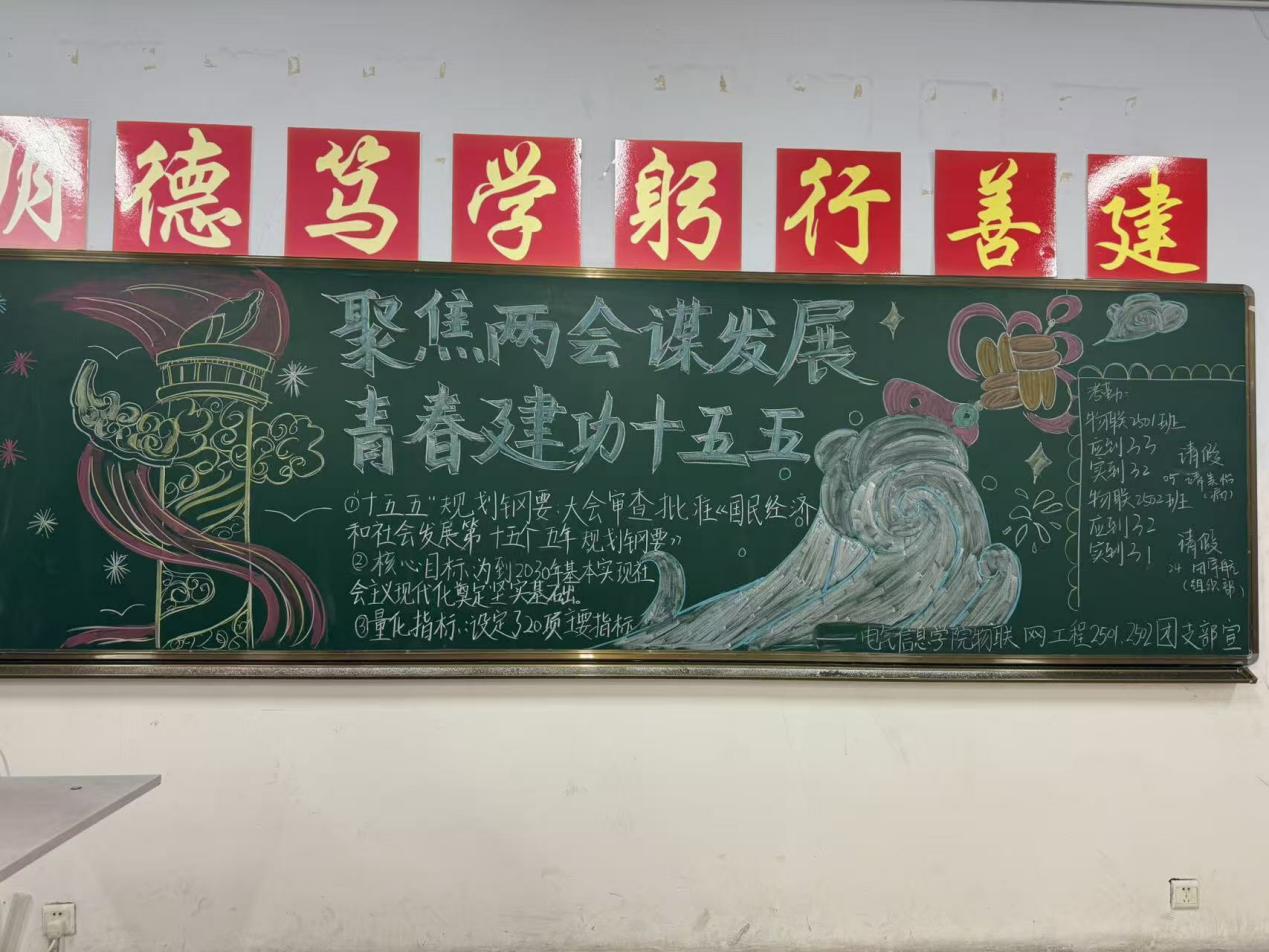 明德笃学躬行善建
聚焦两会谋发展
青春建功十五五
①"十五五"规划纲要:大会审查批准《国民经济
和社会发展第十五个五年规划纲要》
②核心目标:为到2030年基本实现社
会主义现代化奠定坚实基础。
③量化指标:设定了20项主要指标
考勤:
物联2501班
应到33
实到32
请假
物联2502班
应到32
实到31
请假
(组织部)
电气信息学院物联网工程2501、2502团支部宣